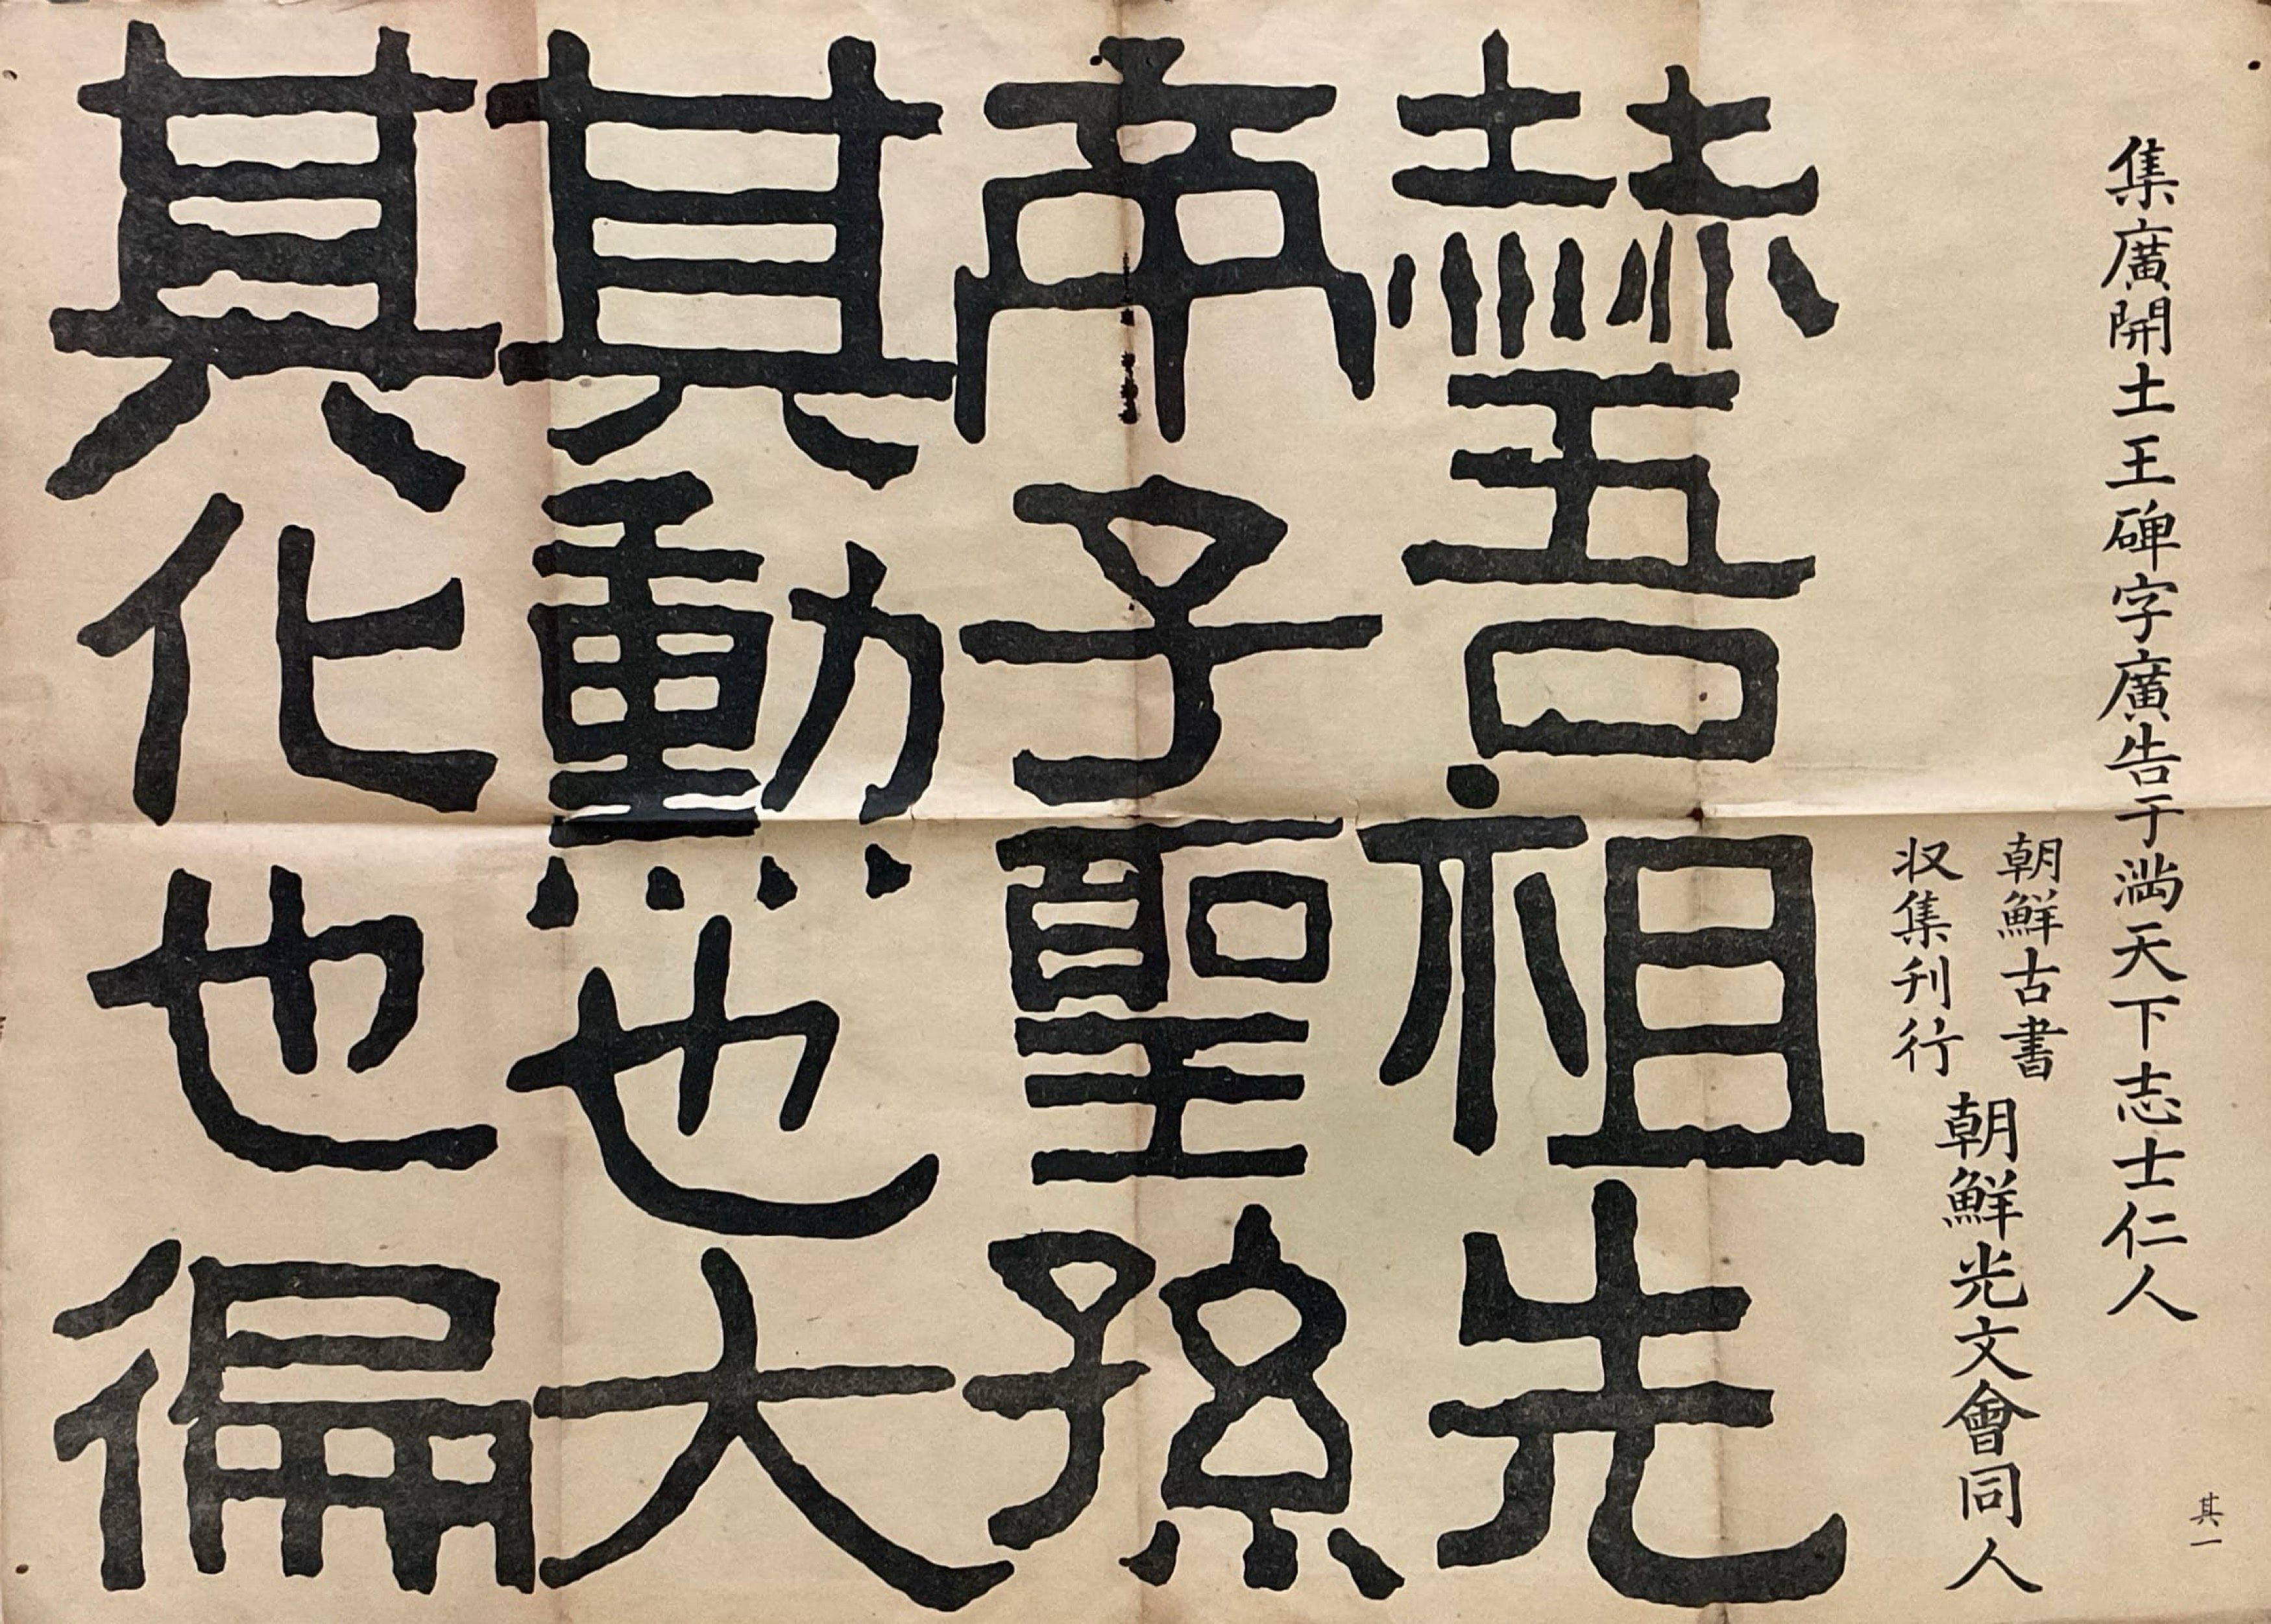 集廣開土王碑字廣告于満天下志士仁人
其一
朝鮮古書
収集刊行
朝鮮光文會同人
赫吾祖先
帝子聖孫
其勳也大
其化也徧